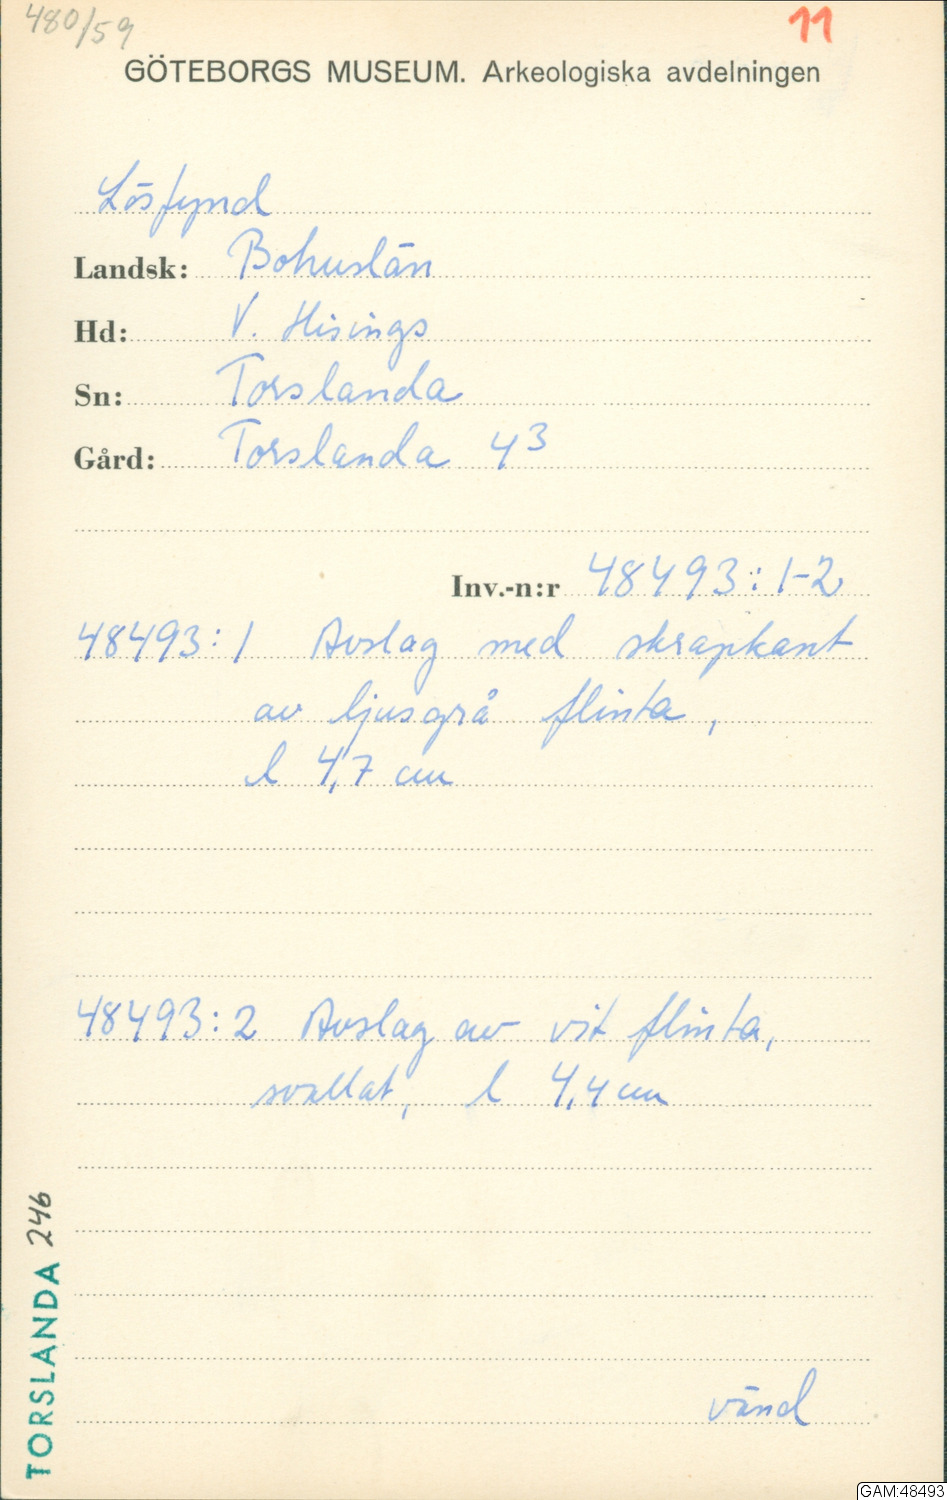 480/59
11
GÖTEBORGS MUSEUM. Arkeologiska avdelningen
Lösfynd
Landsk: Bohuslän
Hd: V. Hisings
Sn: Torslanda
Gård: Torslanda 4³
Inv.-n:r 48493:1-2
48493:1 Avslag med skrapkant
av ljusgrå flinta,
l 4,7 cm
48493:2 Avslag av vit flinta,
svallat, l 4,4 cm
vänd
TORSLANDA 246
GAM:48493